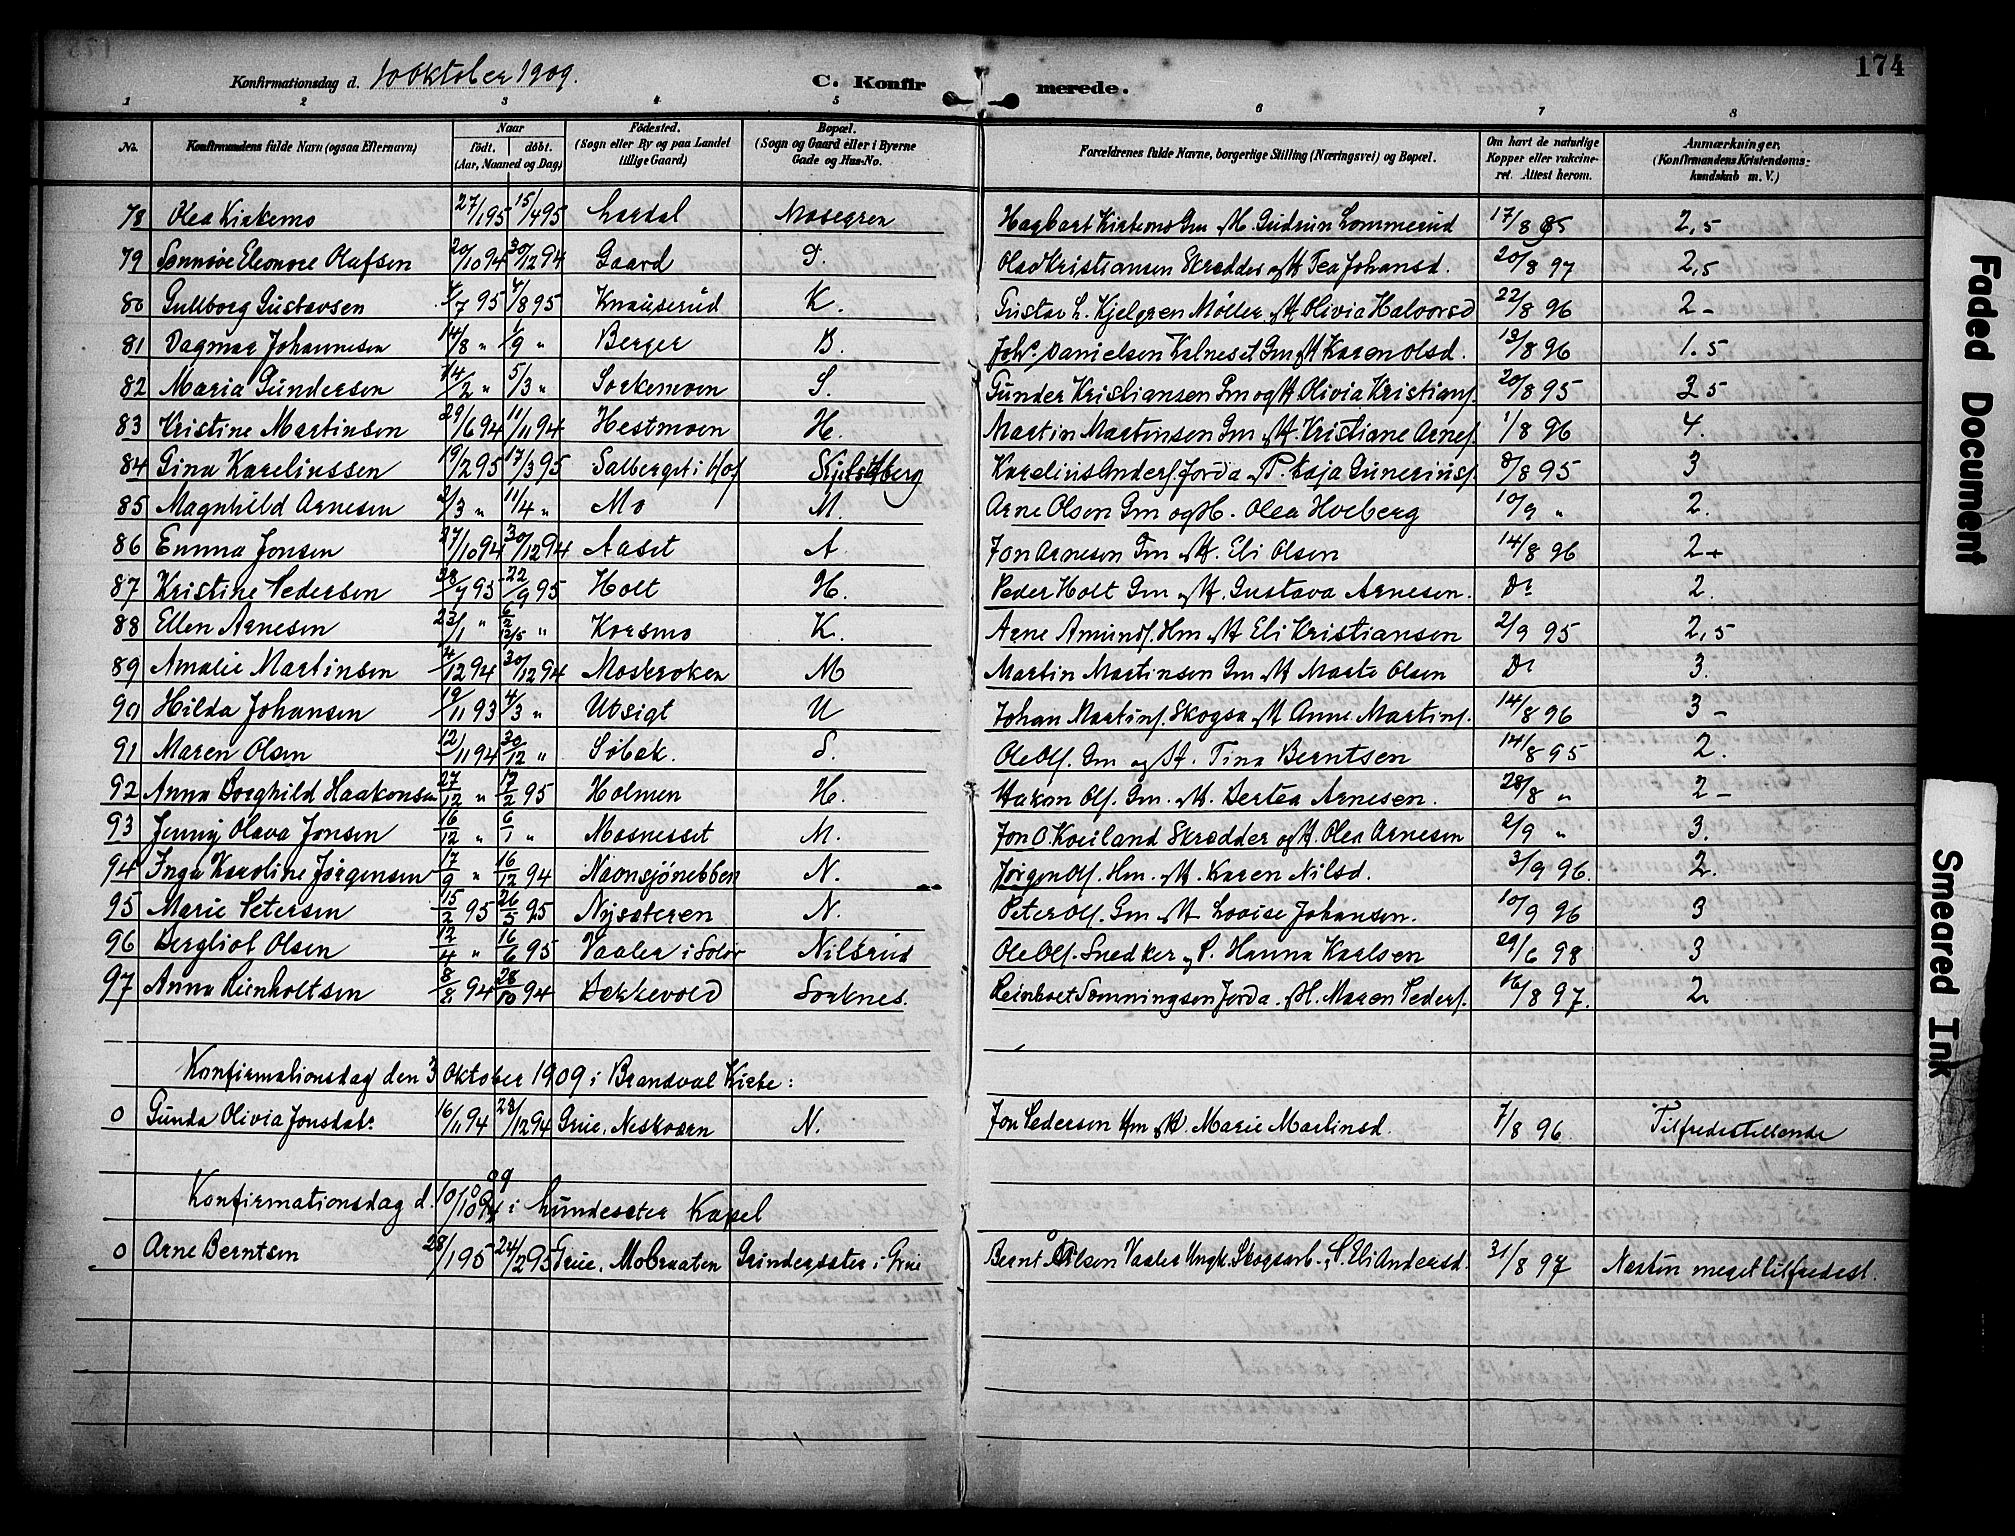 174
Konfirmationsdag d. 10 Oktober 1909.
C. Konfirmerede.
1 2 3 4 5 6 7 8
No. Konfirmandens fulde Navn (ogsaa Efternavn) Naar født. døbt. (Aar, Maaned og Dag) Fødested. (Sogn eller By og paa Landet tillige Gaard) Bopæl. (Sogn og Gaard eller i Byerne Gade og Hus-No. Forældrenes fulde Navne, borgerlige Stilling (Næringsvei) og Bopæl. Om havt de naturlige Kopper eller vakcineret. Attest herom. Anmærkninger. (Konfirmandens Kristendomskundskab m. V.)
78 Olea Kirkemo 27/1 95 15/4 95 Lördal Mosegren Hagbart Kirkemo Gm M. Gudrun Lommerud 17/8 2,5
79 Eleonore Olafsen 20/10 94 30/12 94 Gaard G. Olav Kristiansen Skrædder og H Tea Johansd. 20/8 97 2,5
80 Gullborg Gustavsen /7 95 4/8 95 Knauserud K. Gustav L. Kjelgren Møller. og H Olivia Halvorsd 22/8 96 2-
81 Dagmar Johannesen 14/8 " 1/9 " Berger B. Johs. Danielsen Gm og H Karen Olsd. 13/8 96 1.5
82 Maria Gundersen 14/2 " 5/3 " Sorkemoen S. Gunder Kristiansen Gm og H Olivia Kristians. 20/8 95 2 5
83 Kristine Martinsen 29/6 94 11/11 94 Hestmoen H. Martin Martinsen Gm og H. Kristiane Arnes. 1/8 96 4.
84 Gina Kareliussen 19/2 95 17/3 95 Salberget i Hof Skjelsætberg Karelius Anders. Jorda. og P. Kaja Guneriusf. 8/8 95 3
85 Magnhild Arnesen 2/3 " 11/4 " Mo M. Arne Olsen Gm og H. Olea Hveberg 10/9 " 2.
86 Emma Jonsen 27/10 94 30/12 94 Aaset A. Jon Arnesen Gm og H. Eli Olsen 14/8 96 2+
87 Kristine Pedersen 28/7 95 22/9 95 Holt H. Peder Holt Gm og H. Gustava Arnesen. Do 2.
88 Ellen Arnesen 23/1 " 6/2 12/5 " Korsmo K. Arne Amunds. Hm og H Eli Kristiansen 2/9 95 2,5
89 Amalie Martinsen 4/12 94 30/12 94 Mosbroken M Martin Martinsen Gm og H Marte Olsen Do 3.
90 Hilda Johansen 19/11 93 4/3 " Utsigt U Johan Martins. Skogsa. og H Anne Martins. 14/8 96 3-
91 Maren Olsen 12/11 94 30/12 " Søbak. S. Ole Ols. Gm og H. Tina Berntsen 14/8 95 2.
92 Anna Borghild Haakonsen 27/12 " 17/2 95 Holmen H. Hakon Ols. Gm. og H. Bertea Arnesen. 28/8 " 2-
93 Jenny Olava Jonsen 16/12 " 6/1 " Mosnesset M. Jon O. Koiland Skrædder og H Olea Arnesen 2/9 " 3.
94 Inga Karoline Jørgensen 17/9 " 16/12 94 Naonsjönebben N. Jørgen Ols. Hm. og H. Karen Nilsd. 3/9 96. 2.
95 Marie Petersen 15/2 95 26/5 95 Nysæteren N. Peter Ols. Gm og H Lovise Johansen. 10/9 96 3
96 Bergliot Olsen 12/4 " 16/6 95 Vaaler i Solør Nilsrud Ole Ols. Snedker og P. Hanna Karlsen 29/6 98 3
97 Anna Rienholtsen 8/8 94 28/10 94 Bekkevold Sorknes. Reinholt Sømmingsen Jorda. og H. Maren Peders. 16/8 97. 2
Konfirmationsdag den 3 Oktober 1909 i Brandval Kirke:
0 Gunda Olivia Jonsdatr. 16/11 94 28/12 94 Grue, Neskværn N. Jon Pedersen Hm og H. Marie Martinsd. 7/8 96. Tilfredsstillende
Konfirmationsdag d. 10/10 09 i Lundersæter Kapel
0 Arne Berntsen 28/1 95 24/2 95 Grue, Mobraaten Grindersæter i Grue Bernt Olsen Vaaler Ungk. Skogsarb. og P. Eli Andersd. 31/8 97 Næsten meget tilfredsst.
Faded Document
Smeared Ink